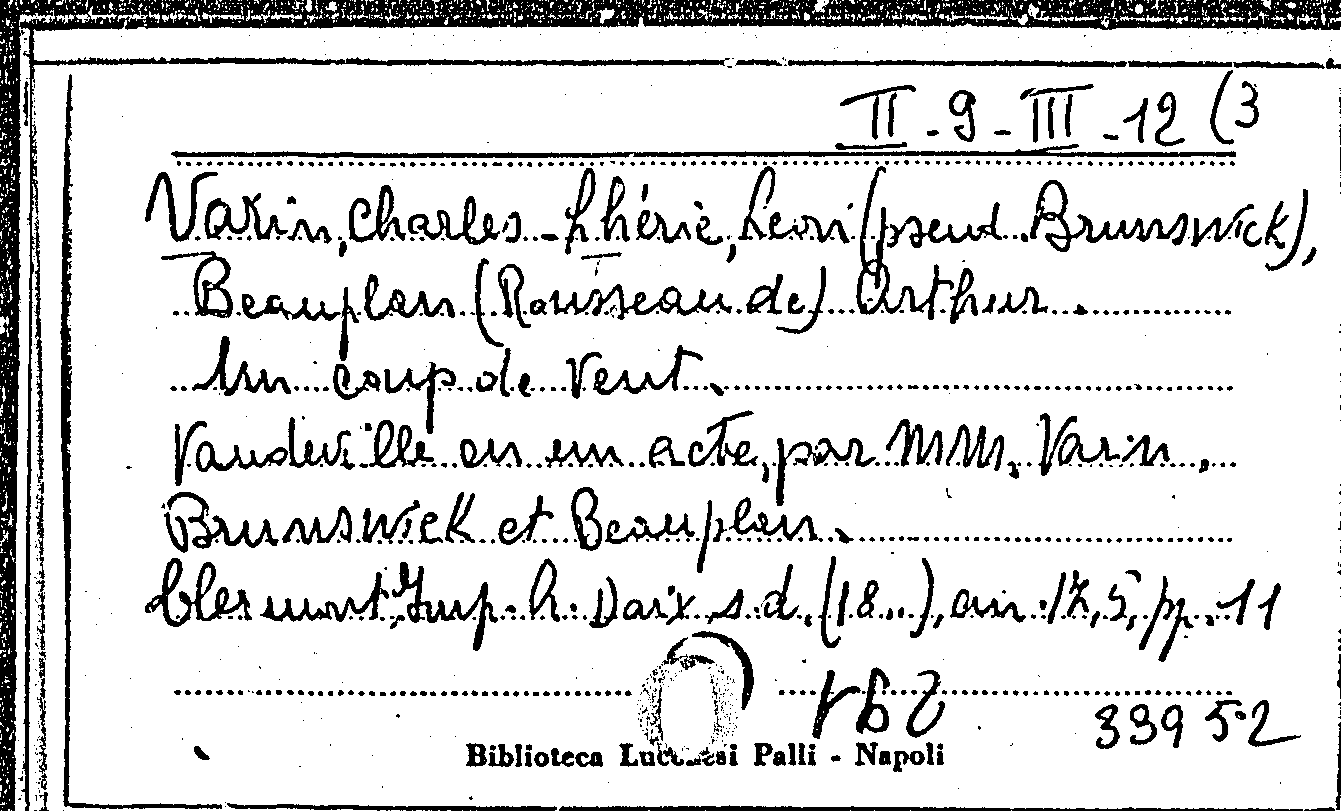 II-9-III-12 (3
Varin, Charles - Lhérie, Leon (pseud. Brunswick),
Beauplan (Rousseau de) Arthur.
Un coup de vent.
Vaudeville en un acte, par MM. Varin,
Brunswick et Beauplan.
Clermont, Imp. A. Daix, s.d. (18..), cm. 17,5, pp. 11
339 52
Biblioteca Lucchesi Palli - Napoli